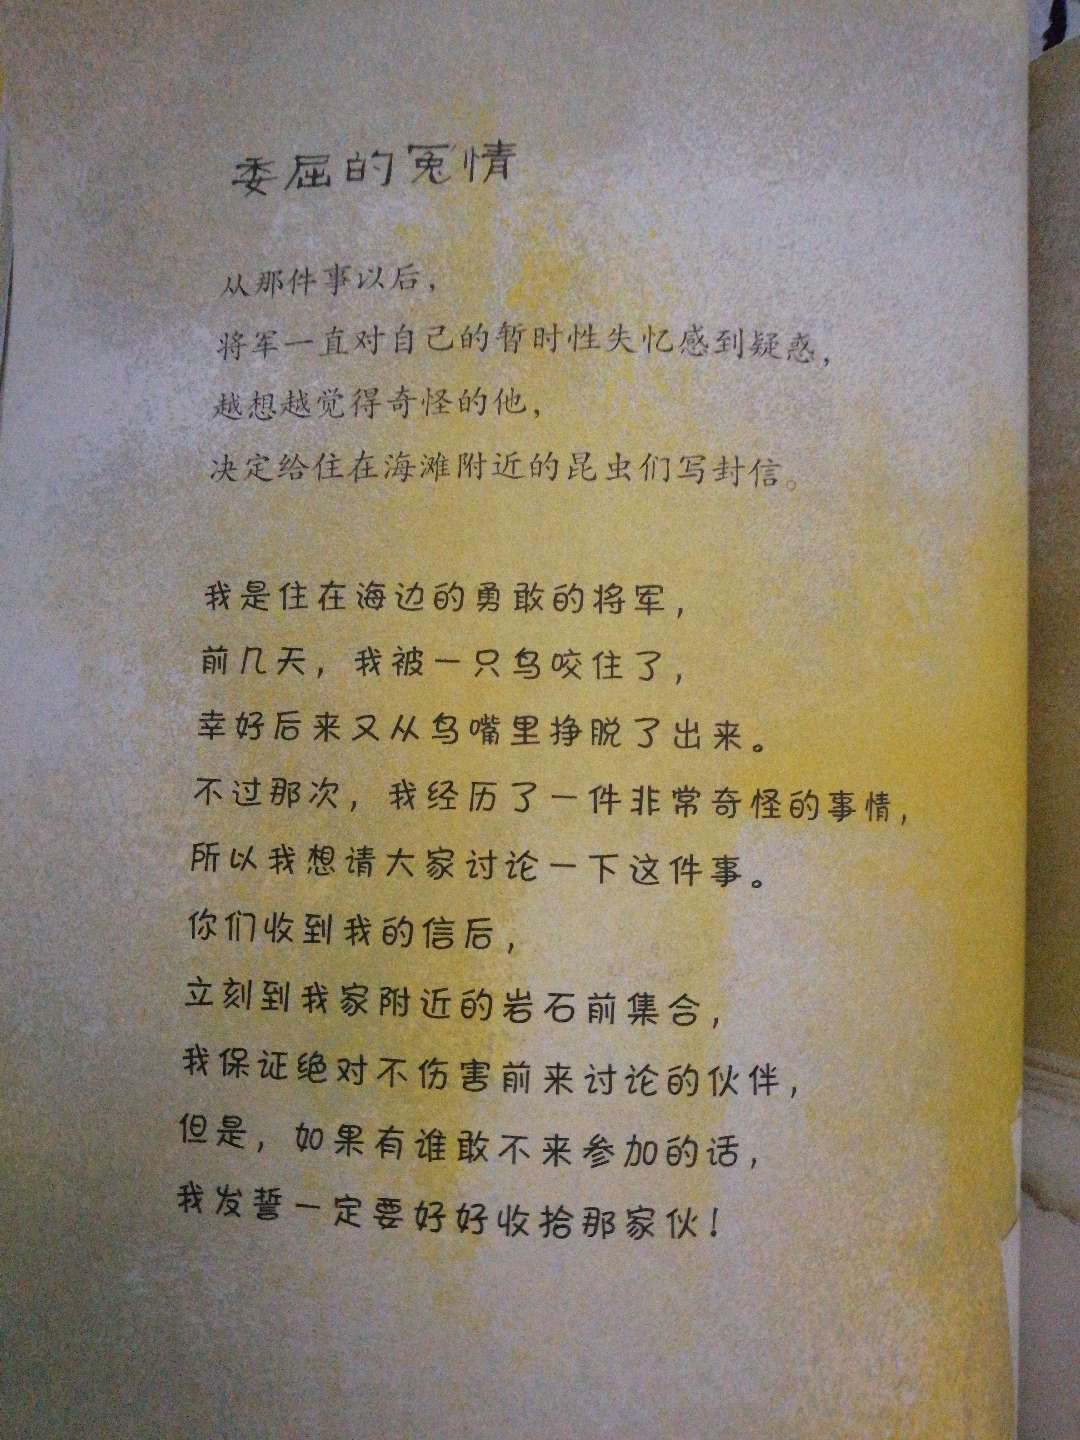 委屈的冤情
从那件事以后，
将军一直对自己的暂时性失忆感到疑惑，
越想越觉得奇怪的他，
决定给住在海滩附近的昆虫们写封信。
我是住在海边的勇敢的将军，
前几天，我被一只鸟咬住了，
幸好后来又从鸟嘴里挣脱了出来。
不过那次，我经历了一件非常奇怪的事情，
所以我想请大家讨论一下这件事。
你们收到我的信后，
立刻到我家附近的岩石前集合，
我保证绝对不伤害前来讨论的伙伴，
但是，如果有谁敢不来参加的话，
我发誓一定要好好收拾那家伙！